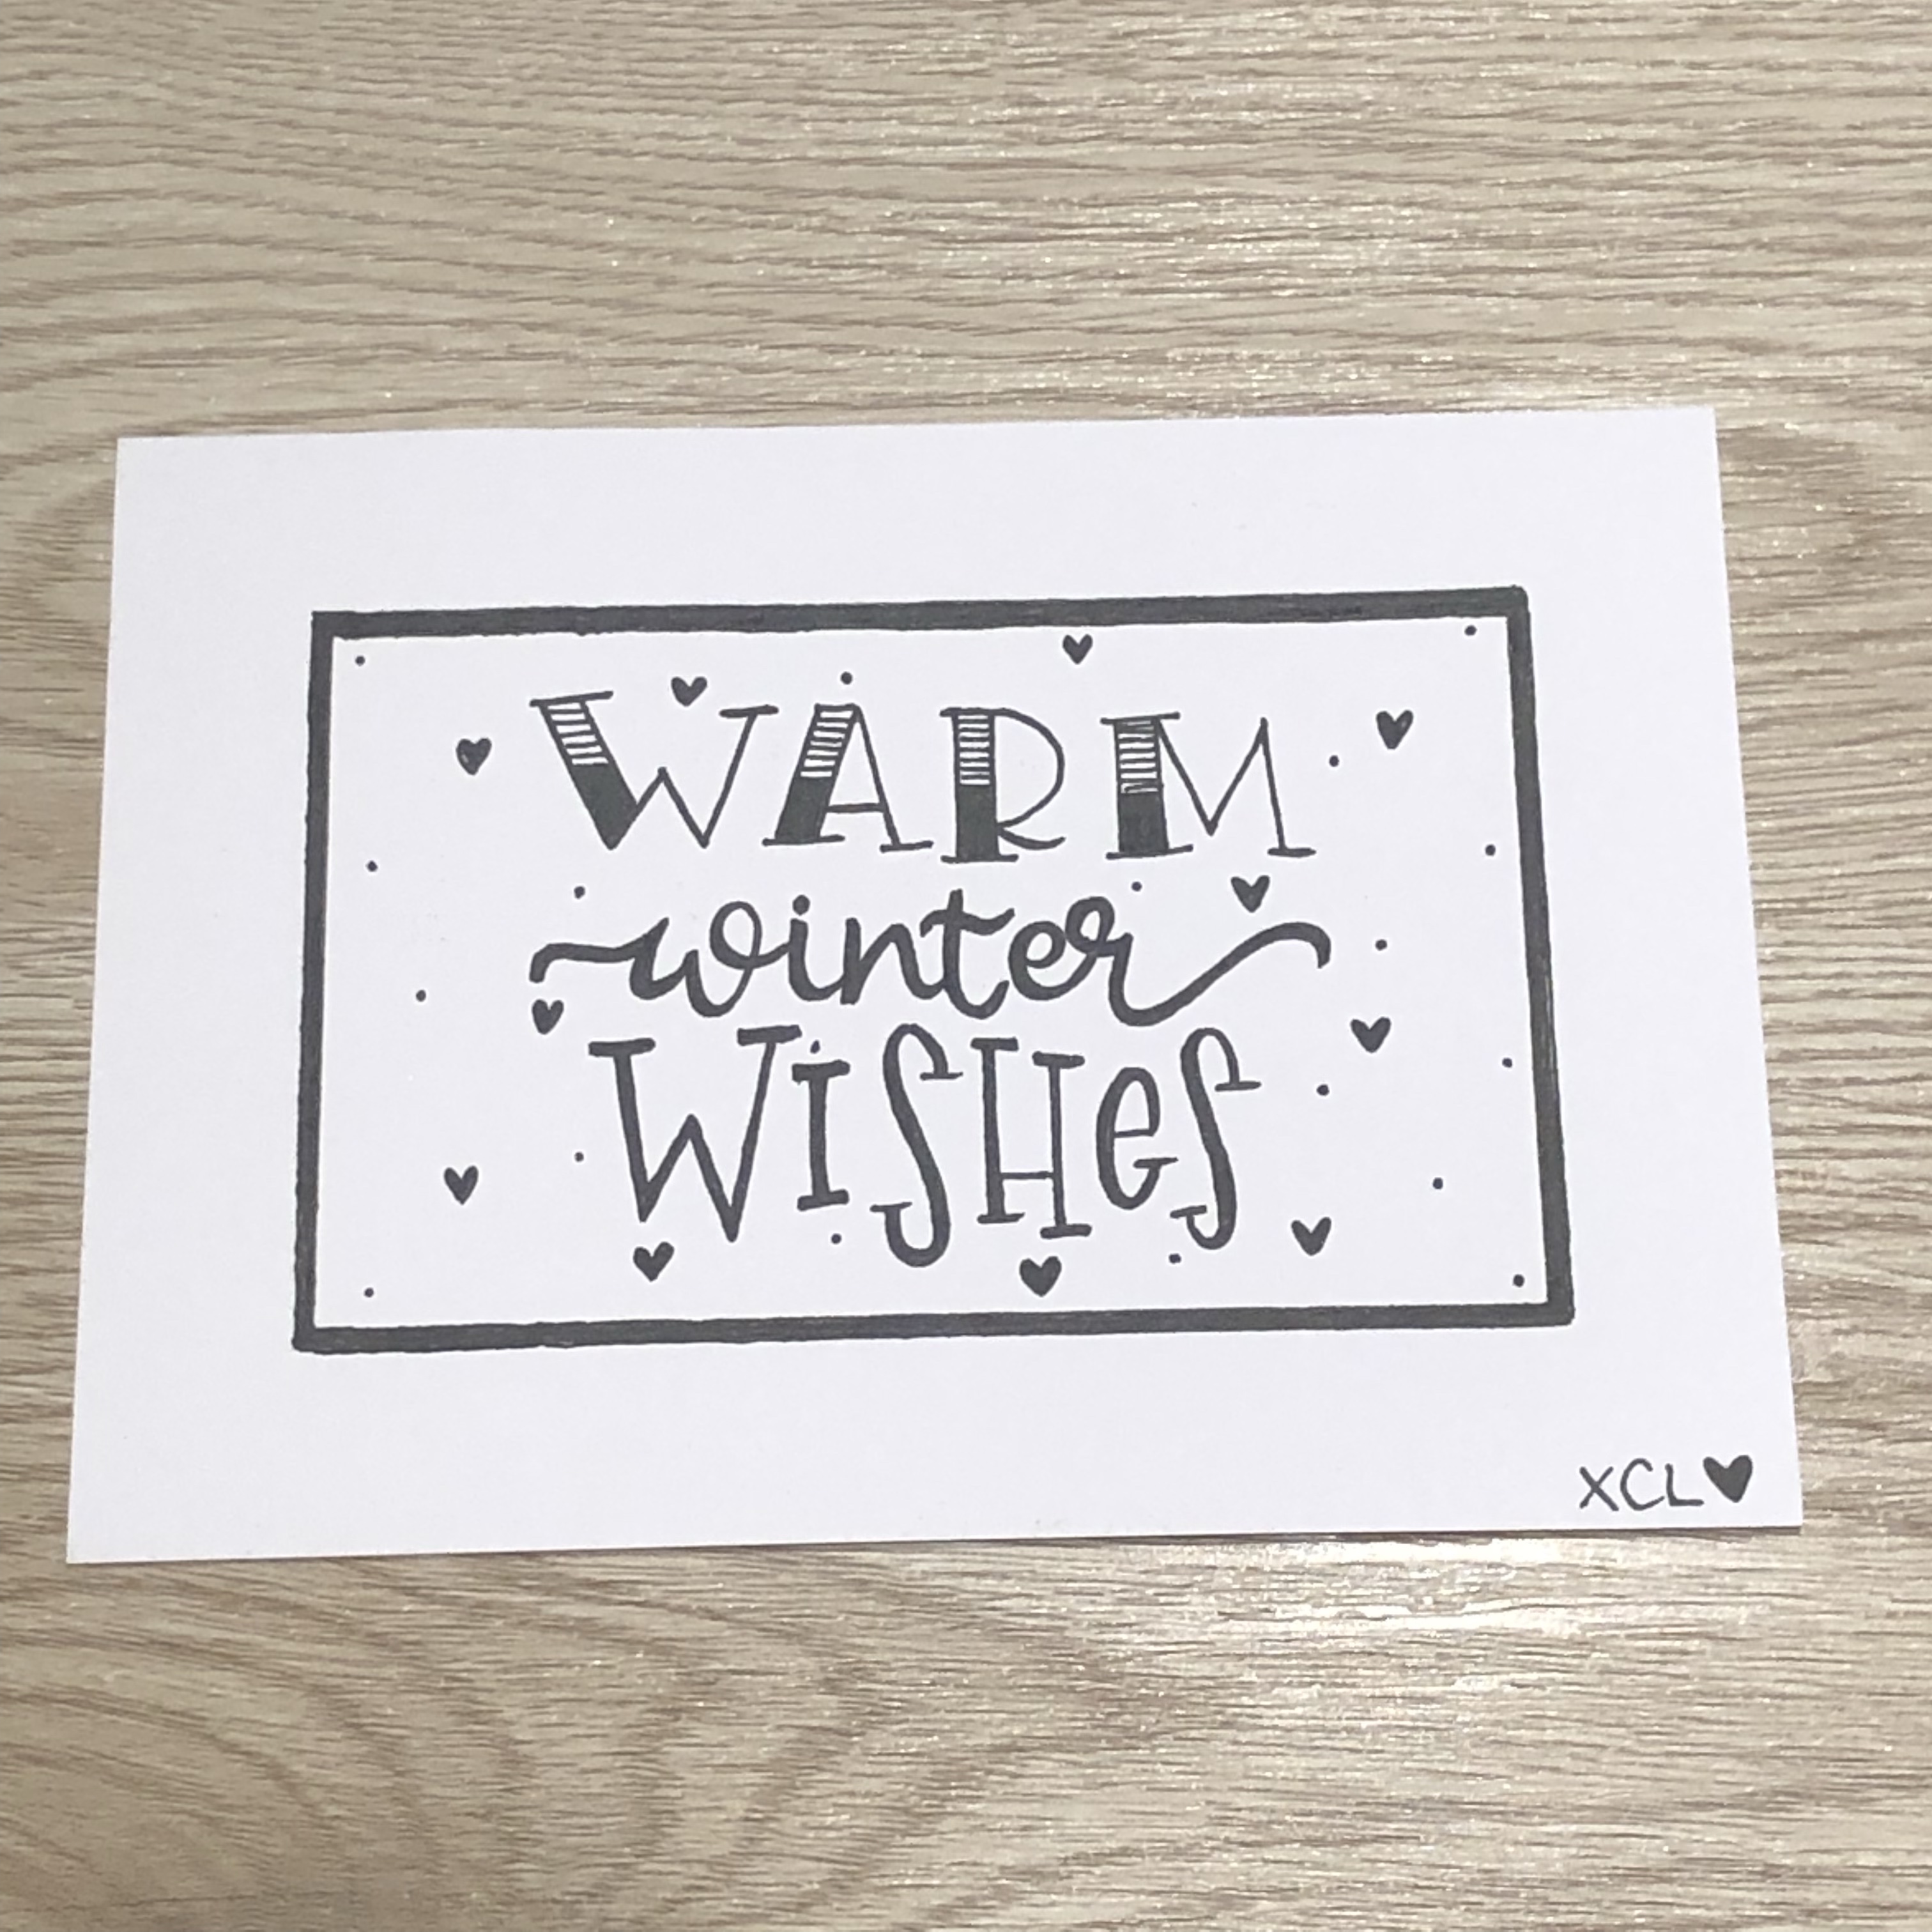 WARM
winter
WiSHeS
XCL♥